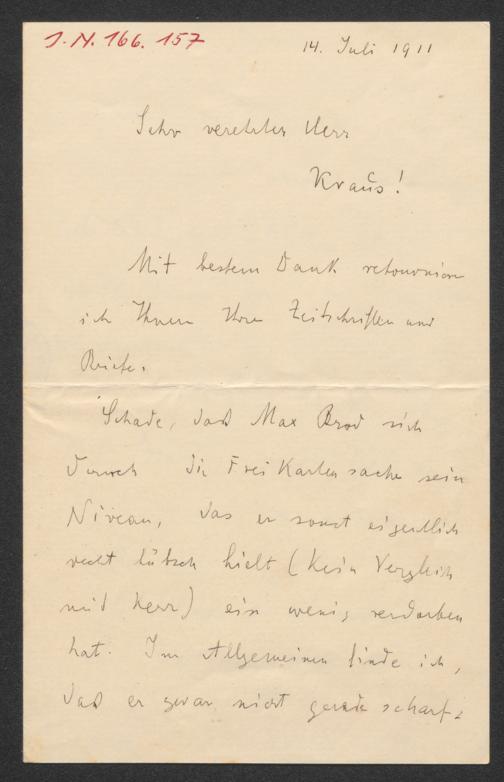 J. N. 166. 157
14. Juli 1911
Sehr verehrter Herr
Kraus!
Mit bestem Dank retourniere
ich Ihnen Ihre Zeitschriften und
Briefe.
Schade, daß Max Brod sich
durch die Freikartensache sein
Niveau, das er sonst eigentlich
recht hübsch hielt (kein Vergleich
mit Kerr) ein wenig verdorben
hat. Im Allgemeinen finde ich,
daß er zwar nicht gerade scharf=